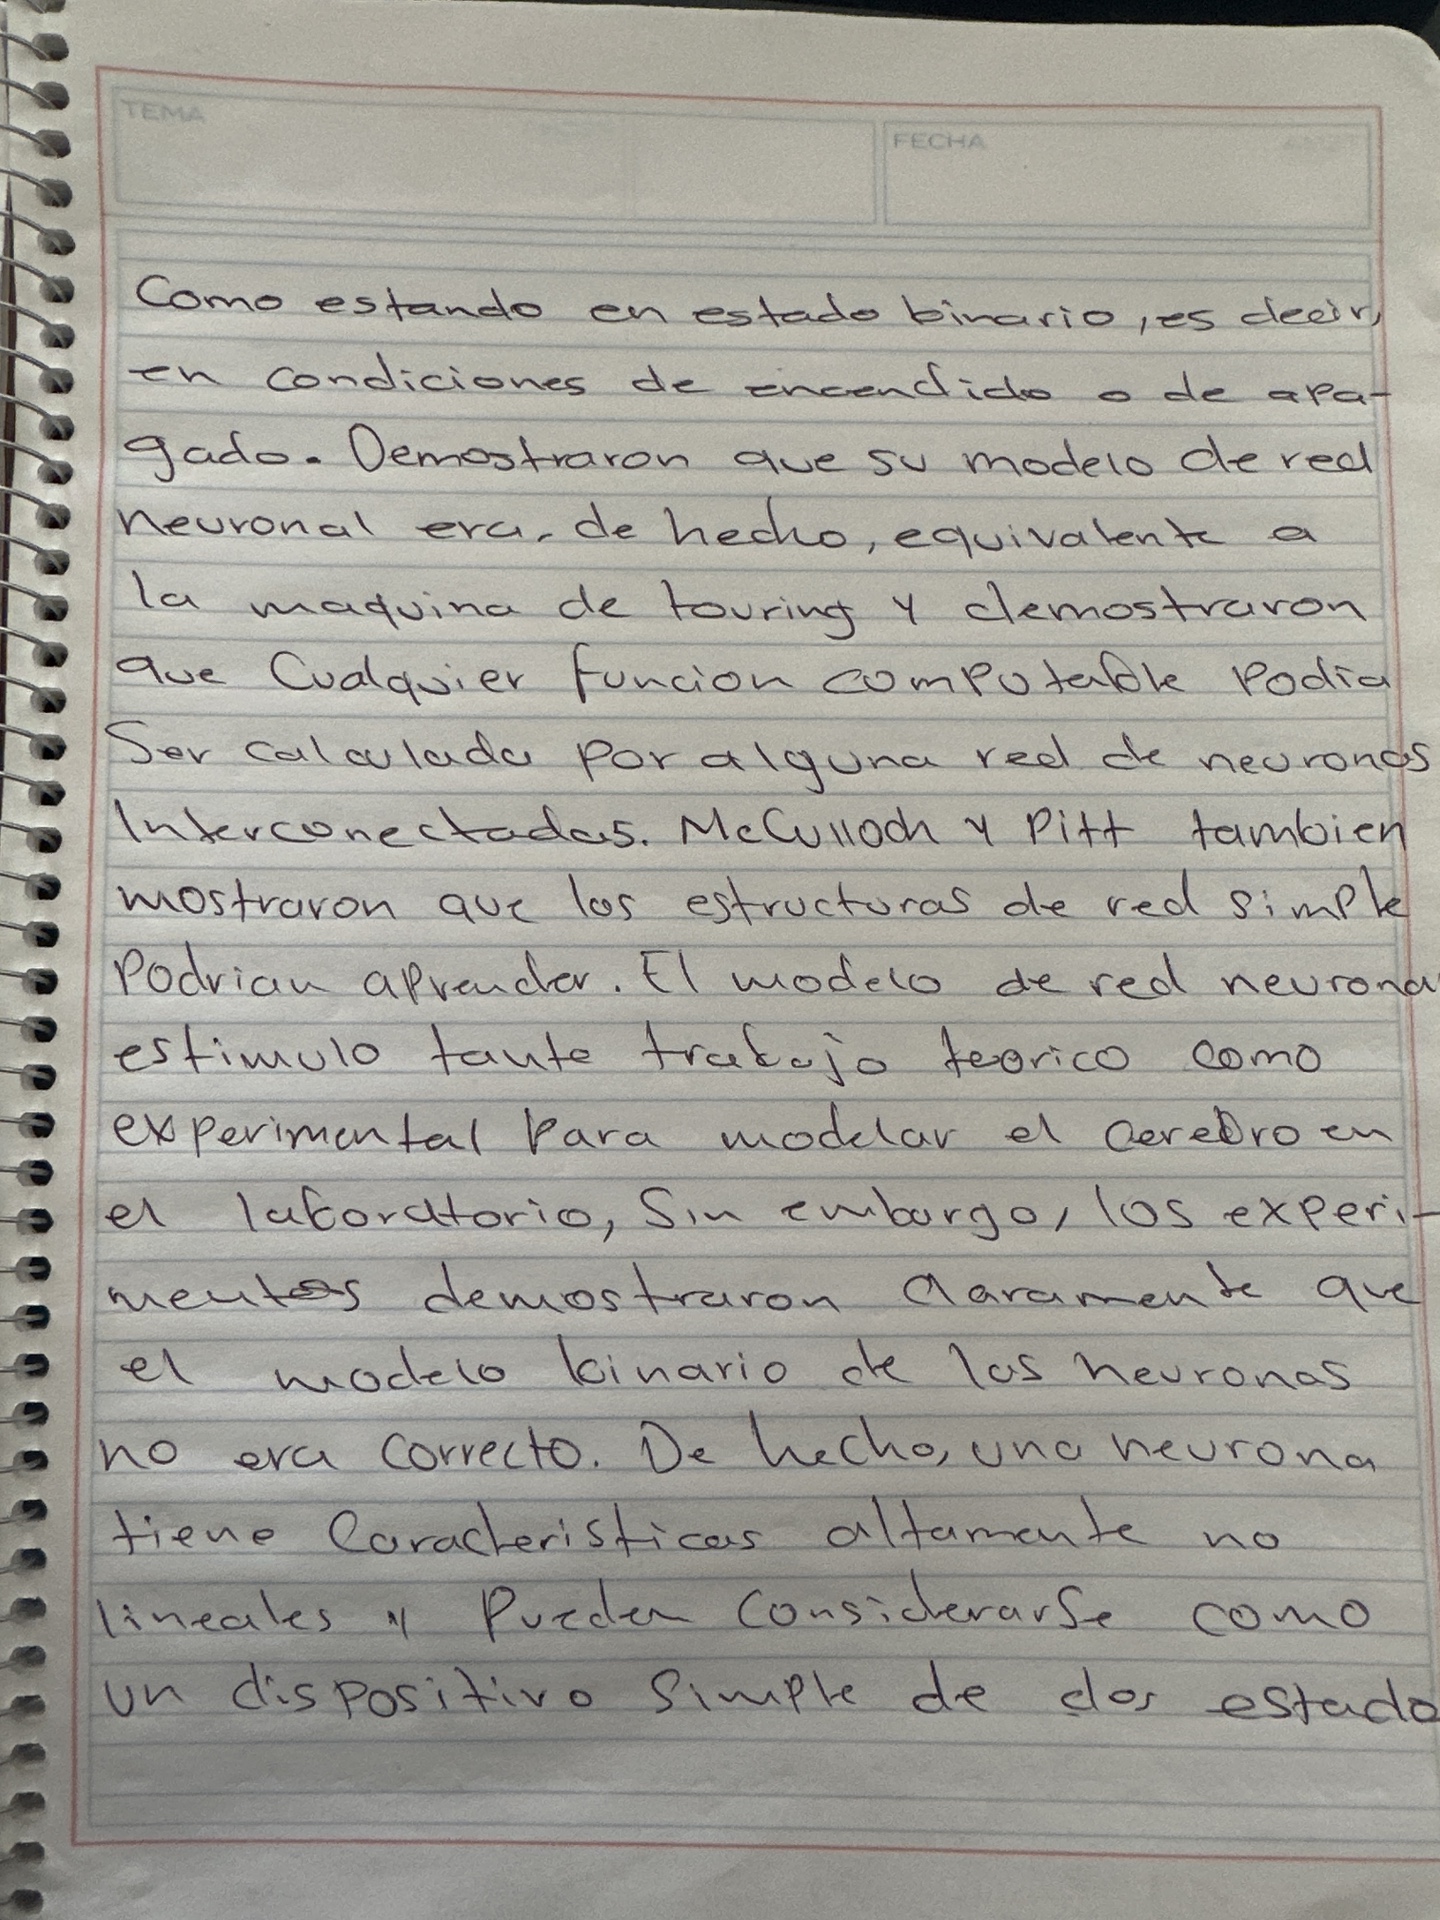 TEMA
FECHA
Como estando en estado binario, es decir,
en condiciones de encendido o de apa-
gado. Demostraron que su modelo de red
neuronal era, de hecho, equivalente a
la maquina de touring y demostraron
que Cualquier funcion computable podia
Ser calculada por alguna red de neuronas
Interconectadas. McCulloch y Pitt tambien
mostraron que las estructuras de red simple
Podrian aprender. El modelo de red neurona
estimulo tante trabajo teorico como
experimental Para modelar el cerebro en
el laboratorio, Sin embargo, los experi-
mentos demostraron claramente que
el modelo binario de las neuronas
no era correcto. De hecho, una neurona
tiene Caracteristicas altamente no
lineales y Pueden Considerarse como
un dispositivo Simple de dos estado